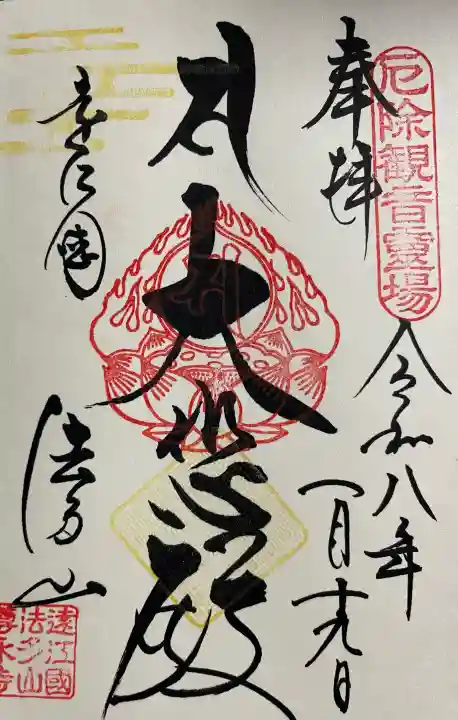 厄除観音靈場
奉拝
令和八年
一月十九日
大悲殿
遠江國
法多山
遠江國
法多山
尊永寺